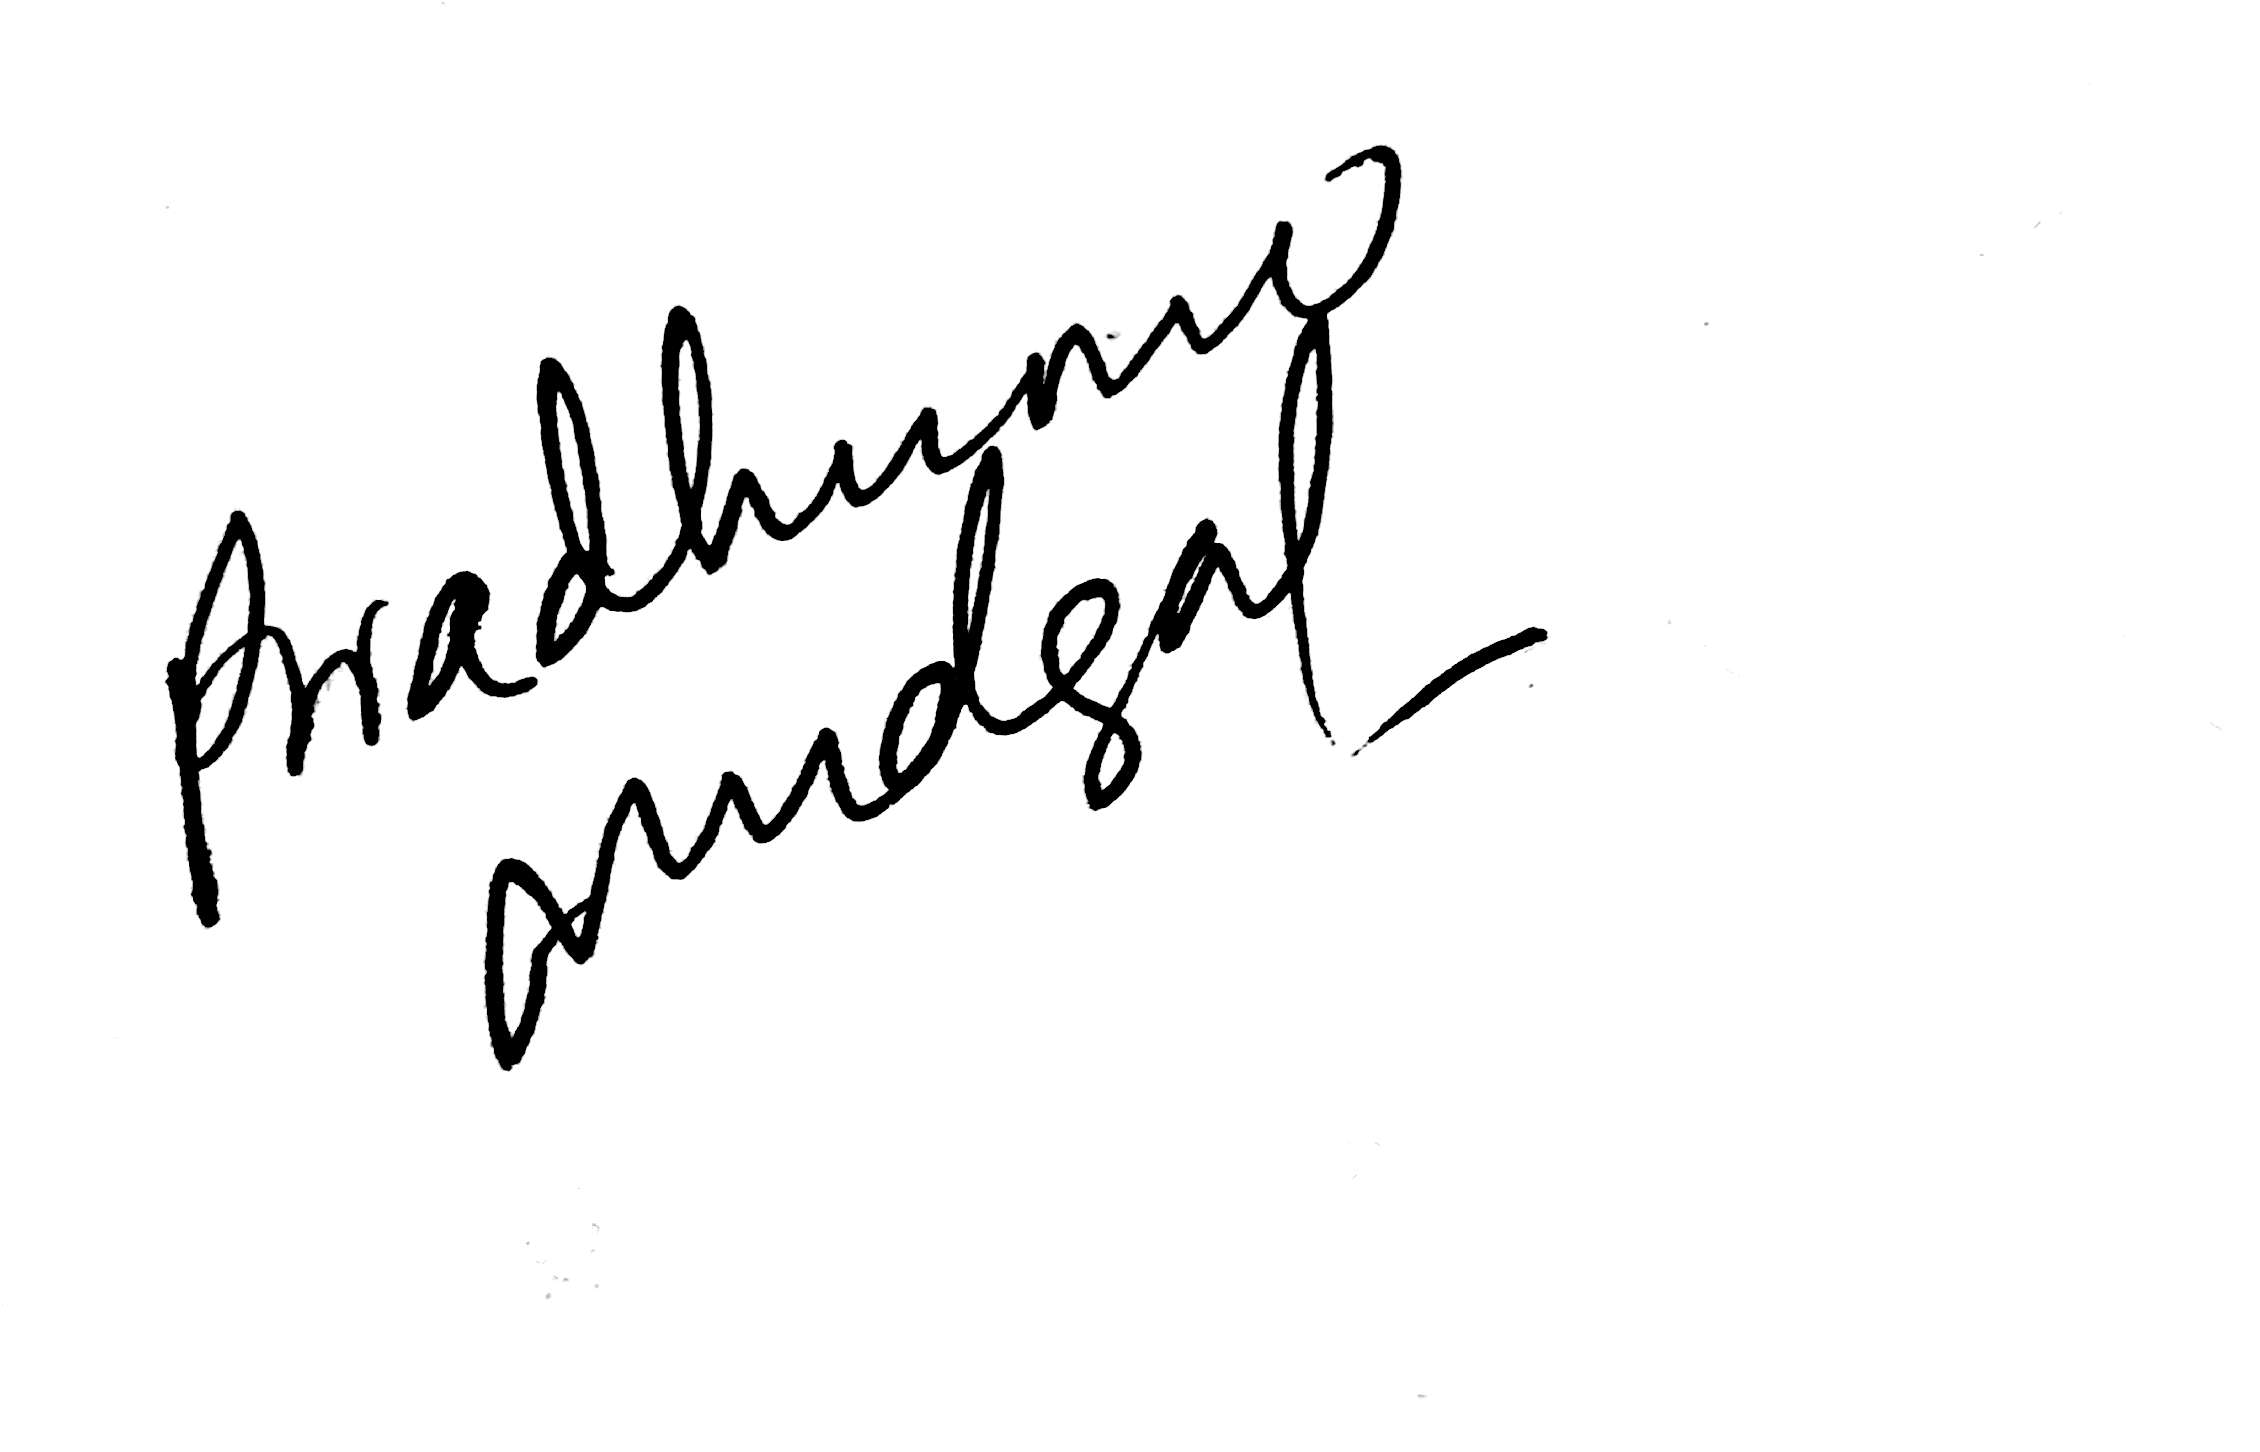 Pradhumn
Mudgal